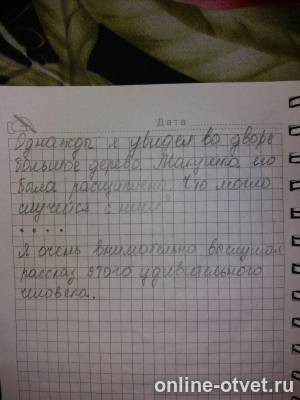 Дата
Однажды я увидел во дворе
большое дерево. Макушка его
была расщеплена. Что могло
случится с ним?
....
Я очень внимательно выслушал
рассказ этого удивительного
человека.
online-otvet.ru